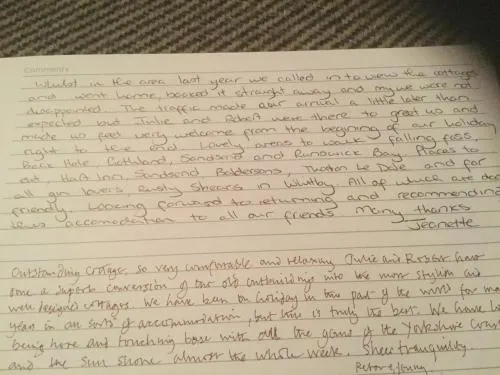 Comments
Whilst in the area last year we called in to view the cottages
and went home, booked it straight away and my we were not
disappointed. The traffic made our arrival a little later than
expected but Julie and Robert were there to greet us and
made us feel very welcome from the beginning of our holiday
right to the end. Lovely areas to walk, falling foss,
Beck Hole, Ruthland, Sandsend and Runswick Bay. Places to
eat Hart Inn, Sandsend Beldersons, Le Dale and for
all gin lovers, Rusty Shears in Whitby. All of which are dog
friendly. Looking forward to returning and recommending
accomodation to all our friends Many thanks
Jeanette
Outstanding cottage, so very comfortable and relaxing Julie and Robert have
done a superb conversion of the old outbuildings into the most stylish and
well designed cottages. We have been on holiday in this part of the world for many
years in all sorts of accommodation, but this is truly the best. We have loved
being here and touching base with all the gems of the Yorkshire Coast
and the sun shone almost the whole week. Sheer tranquility.
Peter & Jenny